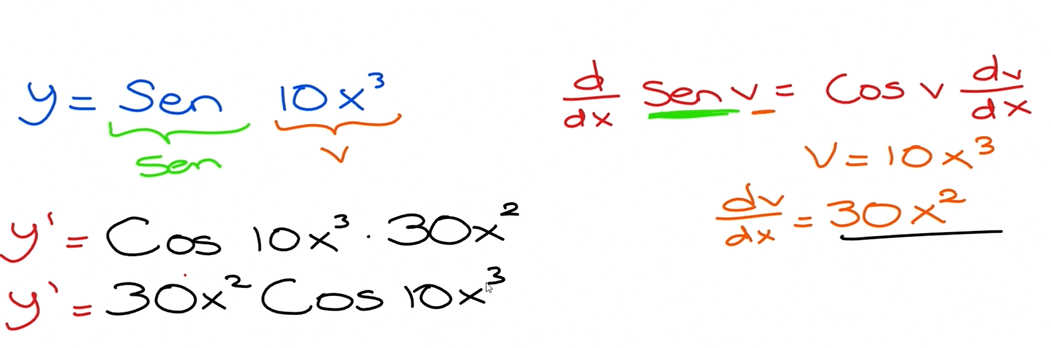 y = Sen 10x³
Sen v
y' = Cos 10x³ · 30x²
y' = 30x² Cos 10x³
d/dx Sen v = Cos v dv/dx
v = 10x³
dv/dx = 30x²